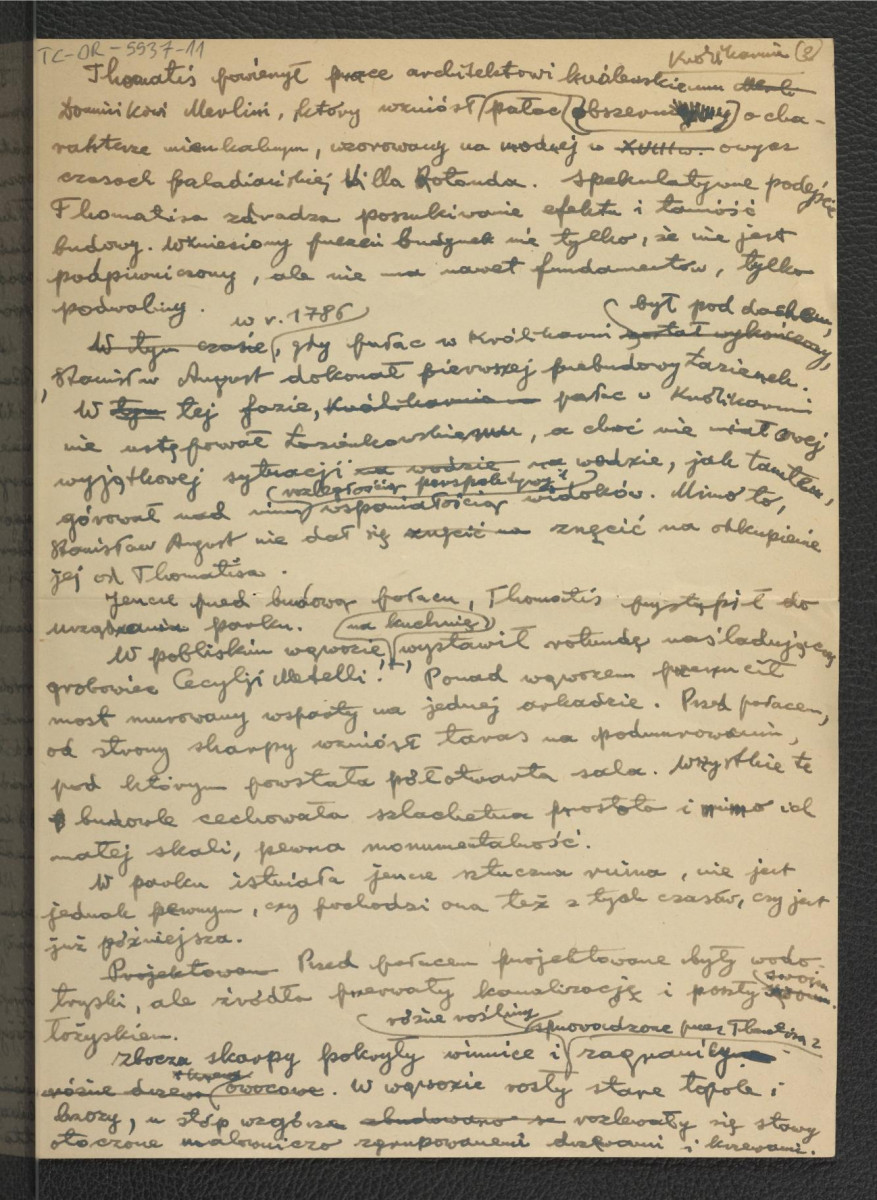 TC-DR-5937-11
Królikarnia (2)
Thomatis powierzył prace architektowi królewskiemu
Dominikowi Merlini, który wzniósł pałac obszerny o cha-
rakterze mieszkalnym, wzorowany na modnej w XVIII w. owych
czasach paladiańskiej Villa Rotonda. Spekulatywne podejście
Thomatisa zdradza poszukiwanie efektu i taniość
budowy. Wzniesiony przezeń budynek nie tylko, że nie jest
podpiwniczony, ale nie ma nawet fundamentów, tylko
podwaliny.
w r. 1786
był pod dachem,
W tym czasie, gdy pałac w Królikarni został wykończony,
Stanisław August dokonał pierwszej przebudowy Łazienek.
W tym tej fazie, Królikarnia pałac w Królikarni
nie ustępował Łazienkowskiemu, a choć nie miał owej
wyjątkowej sytuacji na wodzie na wodzie, jak tamten,
rozległością perspektywy i
górował nad nim wspaniałością widoków. Mimo to,
Stanisław August nie dał się znęcić na znęcić na odkupienie
jej od Thomatisa.
Jeszcze przed budową pałacu, Thomatis przystąpił do
urządzania parku.
na kuchnię
W pobliskim wąwozie wystawił rotundę naśladującą
grobowiec Cecylji Metelli! Ponad wąwozem przerzucił
most murowany wsparty na jednej arkadzie. Przed pałacem,
od strony skarpy wzniósł taras na podmurowaniu,
pod którym powstała półotwarta sala. Wszystkie te
budowle cechowała szlachetna prostota i mimo ich
małej skali, pewna monumentalność.
W parku istniała jeszcze sztuczna ruina, nie jest
jednak pewnym, czy pochodzi ona też z tych czasów, czy jest
już późniejsza.
Projektowano Przed pałacem projektowane były wodo-
tryski, ale źródła przerwały kanalizację i poszły swoim
łożyskiem.
różne rośliny sprowadzone przez Thomatisa z
Zbocza skarpy pokryły winnice i zagranicy
różne drzewa owocowe. W wąwozie rosły stare topole i
brzozy, u stóp wzgórza zbudowano rozlewały się stawy
otoczone malowniczo zgrupowanemi drzewami i krzewami.